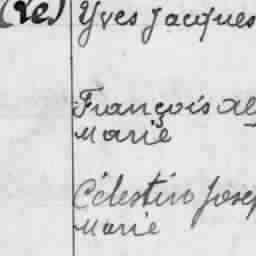 (Le) Yves Jacques
François Al
Marie
Célestin Josep
Marie